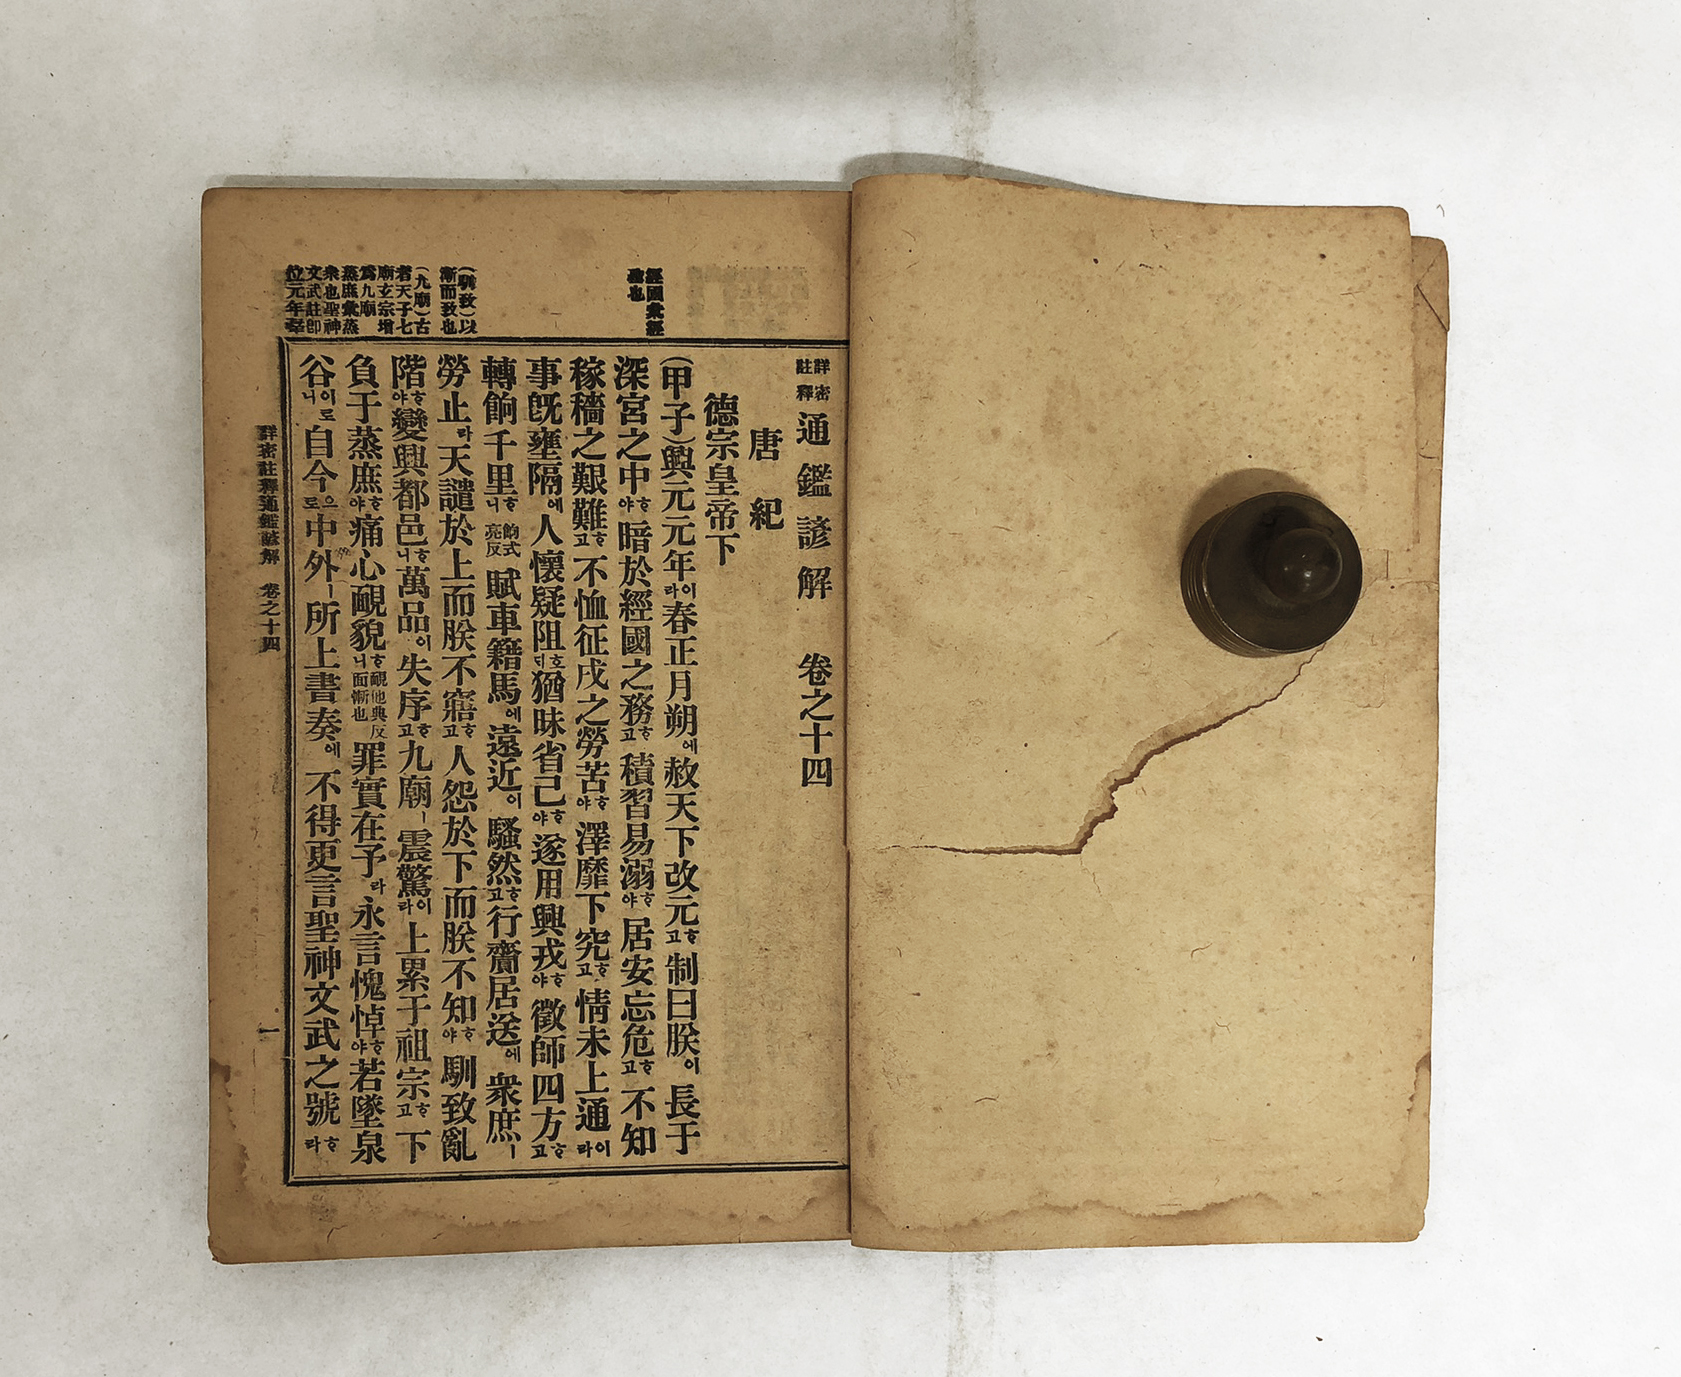 經國彙經
(馴致)以
漸而致也
(九廟)古
者天子七
廟玄宗增
爲九廟
蒸庶彙蒸
衆也聖神
文武註卽
位元年羣
詳密註釋通鑑諺解 卷之十四
唐紀
德宗皇帝下
(甲子)興元元年이라春正月朔에赦天下改元ᄒᆞ고制曰朕이長于
深宮之中ᄒᆞ야暗於經國之務ᄒᆞ고積習易溺ᄒᆞ야居安忘危ᄒᆞ고不知
稼穡之艱難ᄒᆞ고不恤征戍之勞苦ᄒᆞ야澤靡下究ᄒᆞ고情未上通이라
事旣壅隔에人懷疑阻호ᄃᆡ猶昧省己ᄒᆞ야遂用興戎ᄒᆞ야徵師四方ᄒᆞ고
轉餉千里ᄒᆞ니餉式亮反賦車籍馬에遠近이騷然ᄒᆞ고行齎居送에衆庶ㅣ
勞止라天譴於上而朕不寤ᄒᆞ고人怨於下而朕不知ᄒᆞ야馴致亂
階ᄒᆞ야變興都邑ᄒᆞ니萬品이失序ᄒᆞ고九廟ㅣ震驚이라上累于祖宗ᄒᆞ고下
負于蒸庶ᄒᆞ야痛心靦貌ᄒᆞ니靦他典反面慚也罪實在予라永言愧悼ᄒᆞ야若墜泉
谷이로니自今으로中外ㅣ所上書奏에不得更言聖神文武之號ᄒᆞ라
詳密註釋通鑑諺解 卷之十四 一